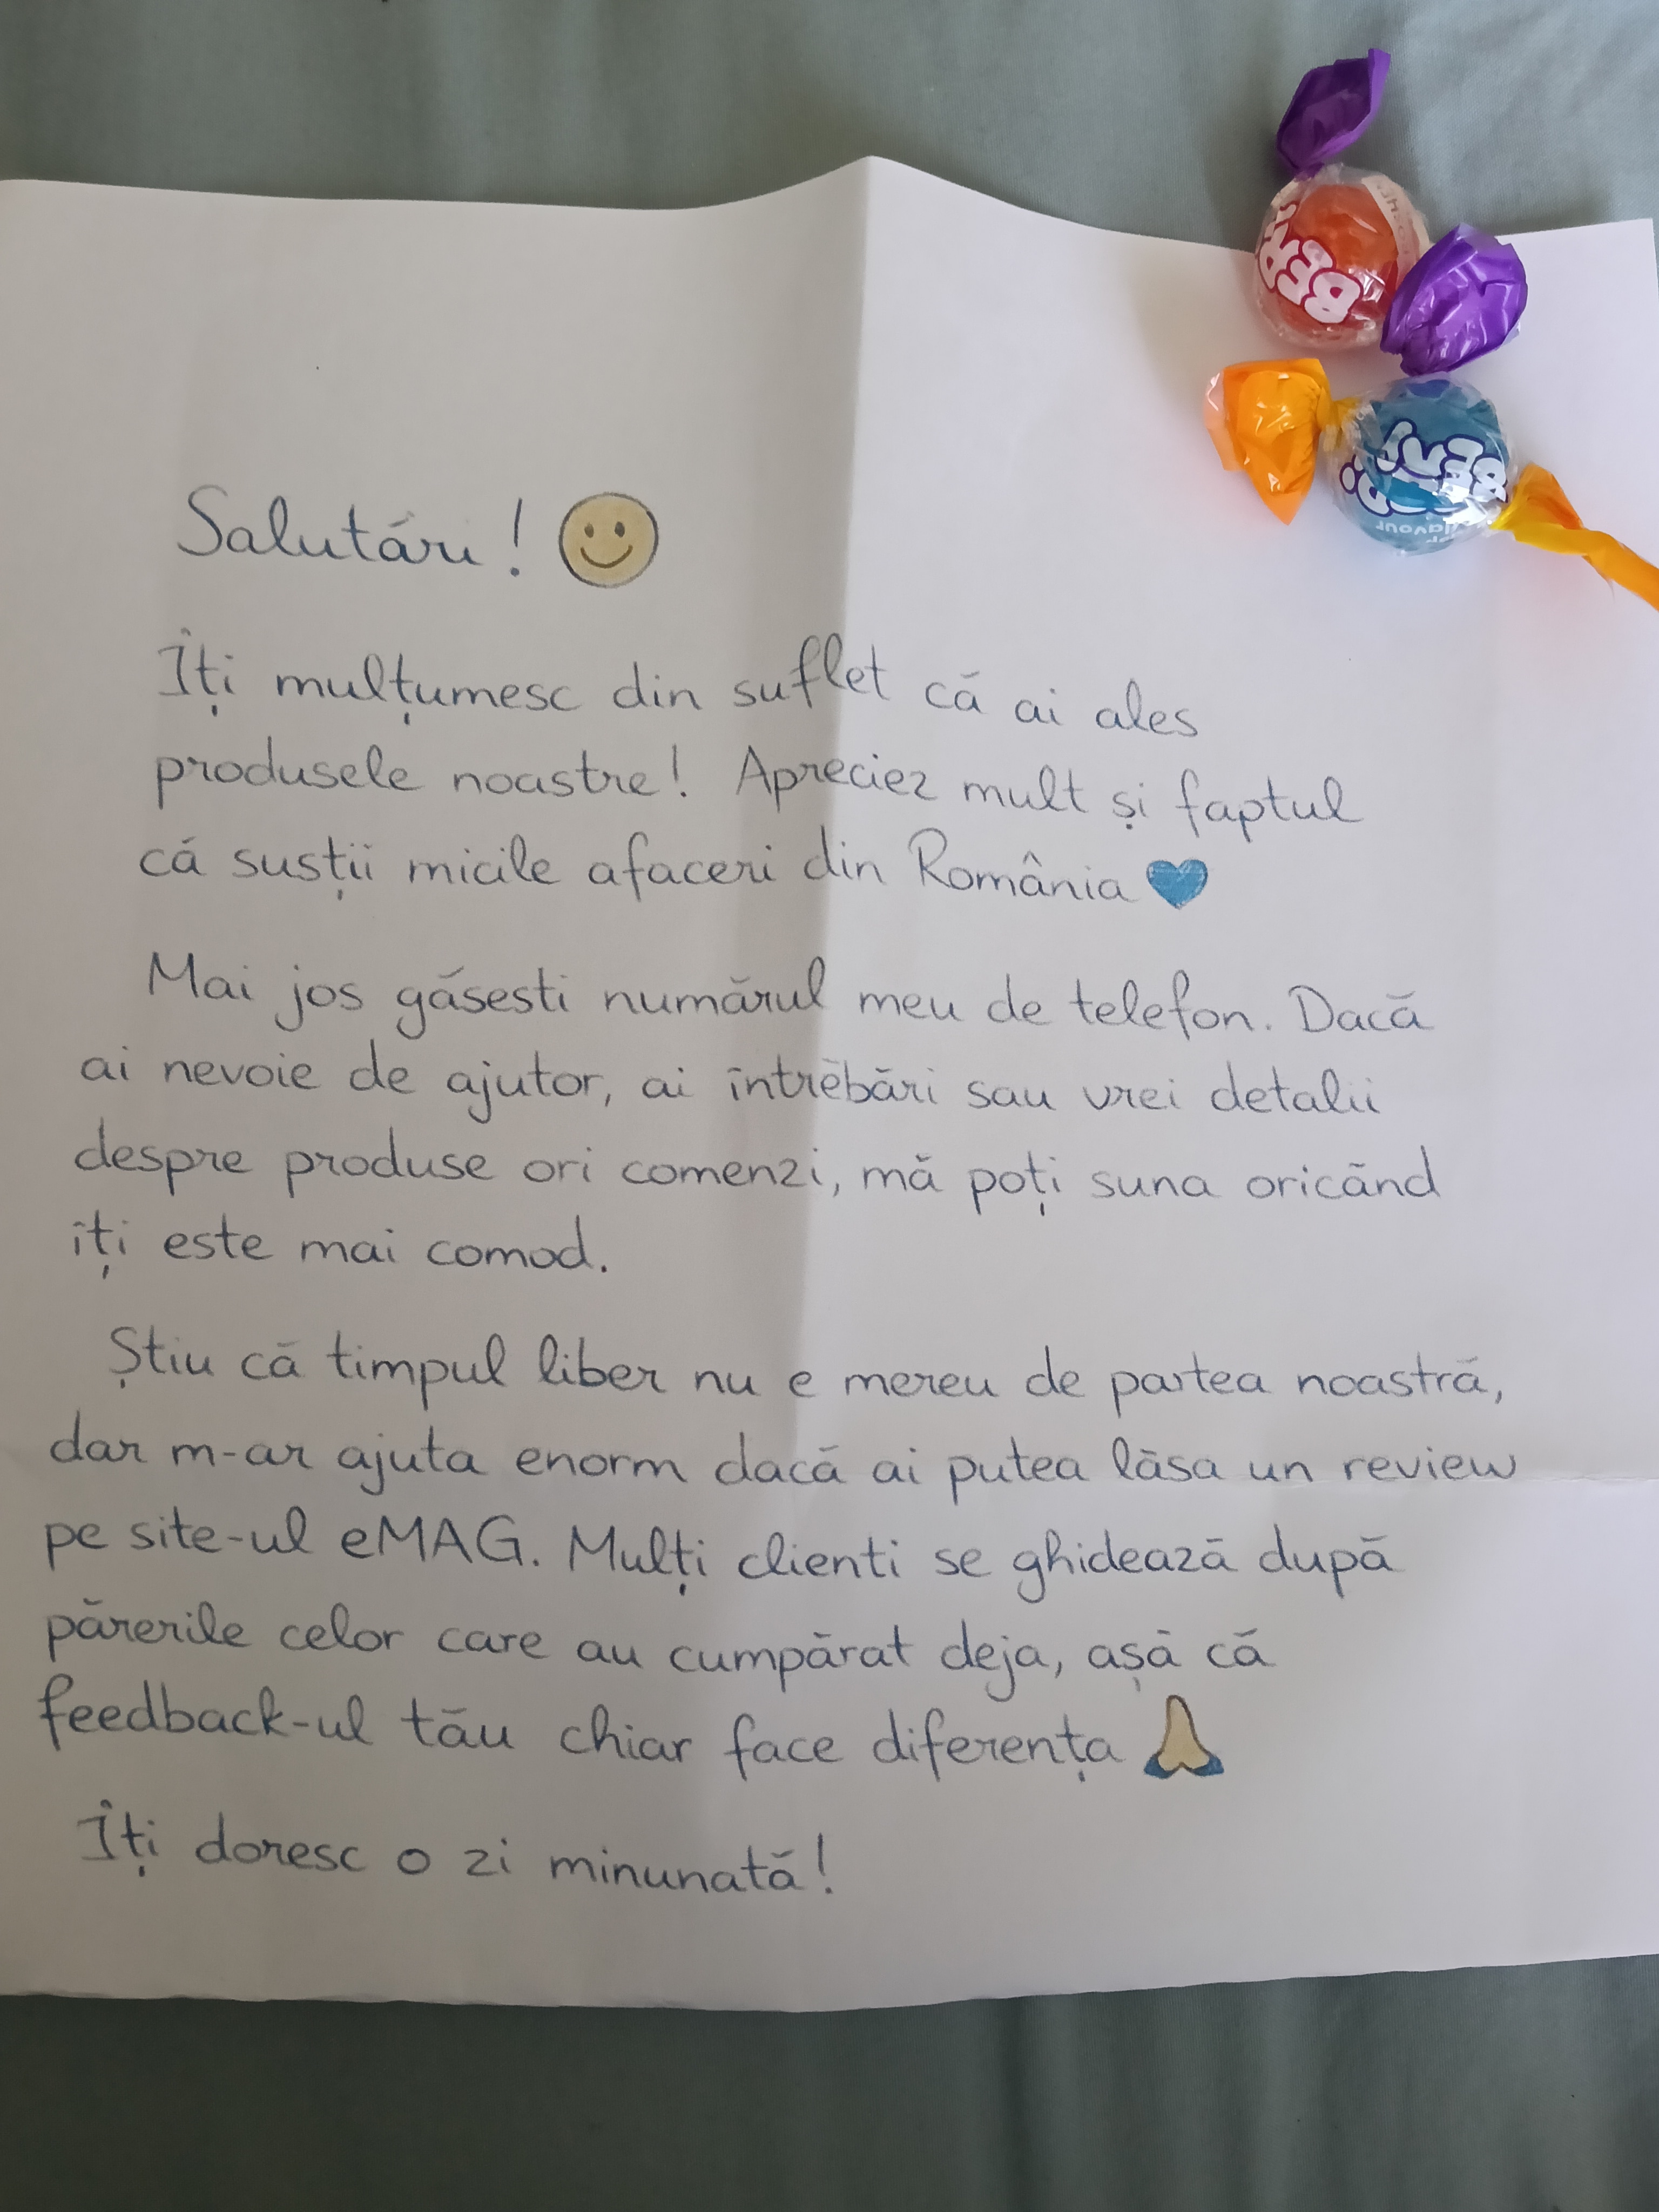 Salutări! 🙂
Îți mulțumesc din suflet că ai ales
produsele noastre! Apreciez mult și faptul
că susții micile afaceri din România 💙
Mai jos găsesti numărul meu de telefon. Dacă
ai nevoie de ajutor, ai intrebări sau vrei detalii
despre produse ori comenzi, mă poți suna oricând
îți este mai comod.
Știu că timpul liber nu e mereu de partea noastră,
dar m-ar ajuta enorm dacă ai putea lăsa un review
pe site-ul eMAG. Mulți clienti se ghidează după
părerile celor care au cumpărat deja, așă că
feedback-ul tău chiar face diferența 🙏
Îți doresc o zi minunată!